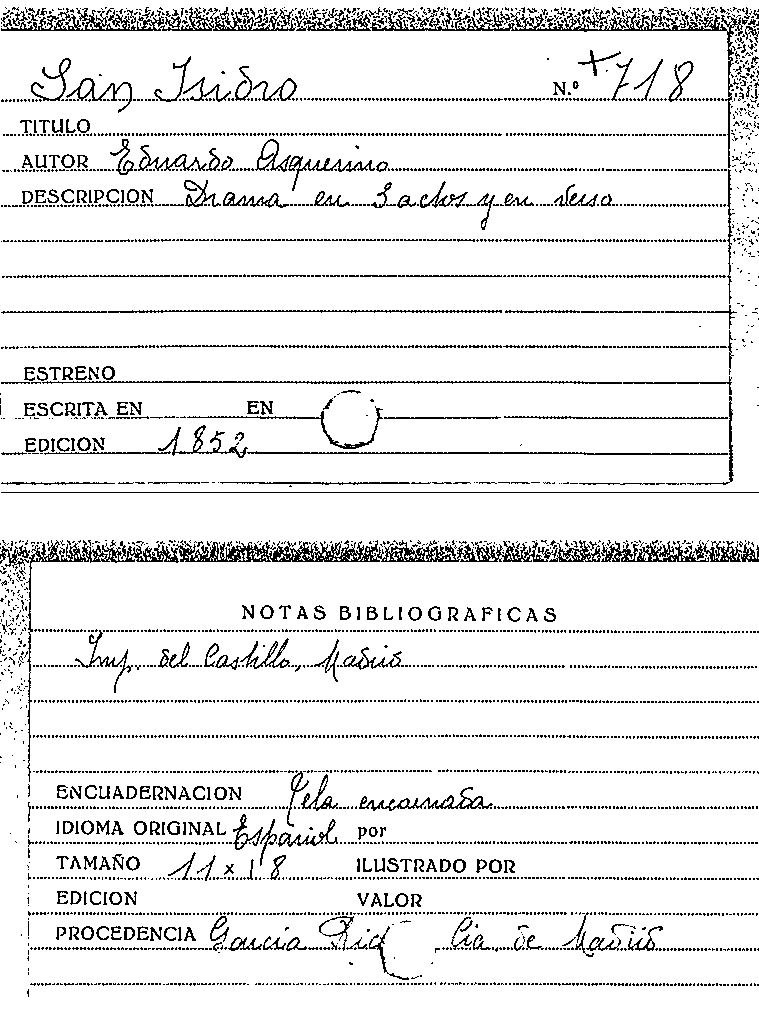 San Isidro N.º +718
TITULO
AUTOR Eduardo Asquerino
DESCRIPCION Drama en 3 actos y en verso
ESTRENO
ESCRITA EN EN
EDICION 1852
NOTAS BIBLIOGRAFICAS
Imp. del Castillo, Madrid
ENCUADERNACION Tela encarnada
IDIOMA ORIGINAL Español por
TAMAÑO 11 x 18 ILUSTRADO POR
EDICION VALOR
PROCEDENCIA García Rico Cia. de Madrid